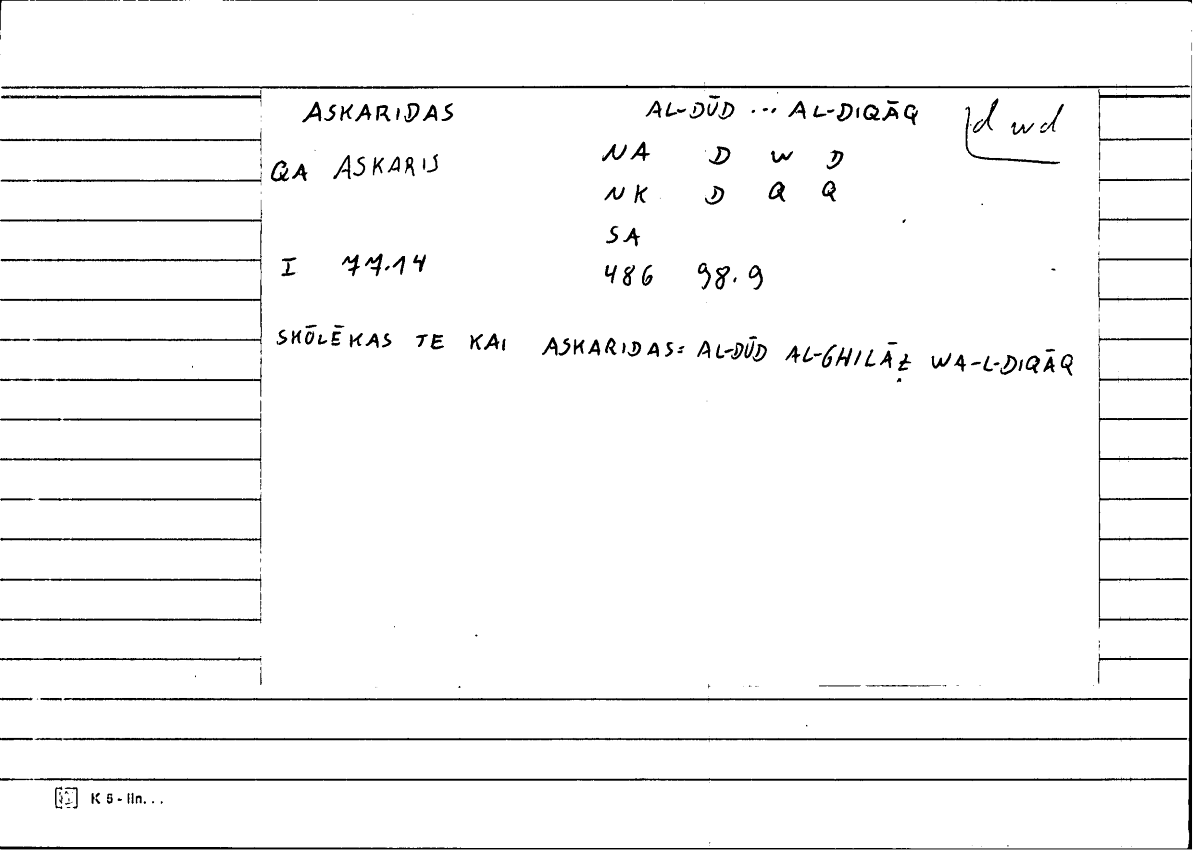 ASKARIDAS AL-DŪD ... AL-DIQĀQ dwd
QA ASKARIS NA D W D
NK D Q Q
SA
I 77.14 486 98.9
SKŌLĒKAS TE KAI ASKARIDAS: AL-DŪD AL-GHILĀẒ WA-L-DIQĀQ
K 5 - lln...